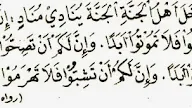 خَلَ أَهْلُ الْجَنَّةِ الْجَنَّةَ يُنَادِي مُنَادٍ: إِ
وْا فَلَا تَمُوتُوا أَبَدًا. وَإِنَّ لَكُمْ أَنْ تَصِحُّوا
بَدًا. وَإِنَّ لَكُمْ أَنْ تَشِبُّوا فَلَا تَهْرَمُوا
(رواه